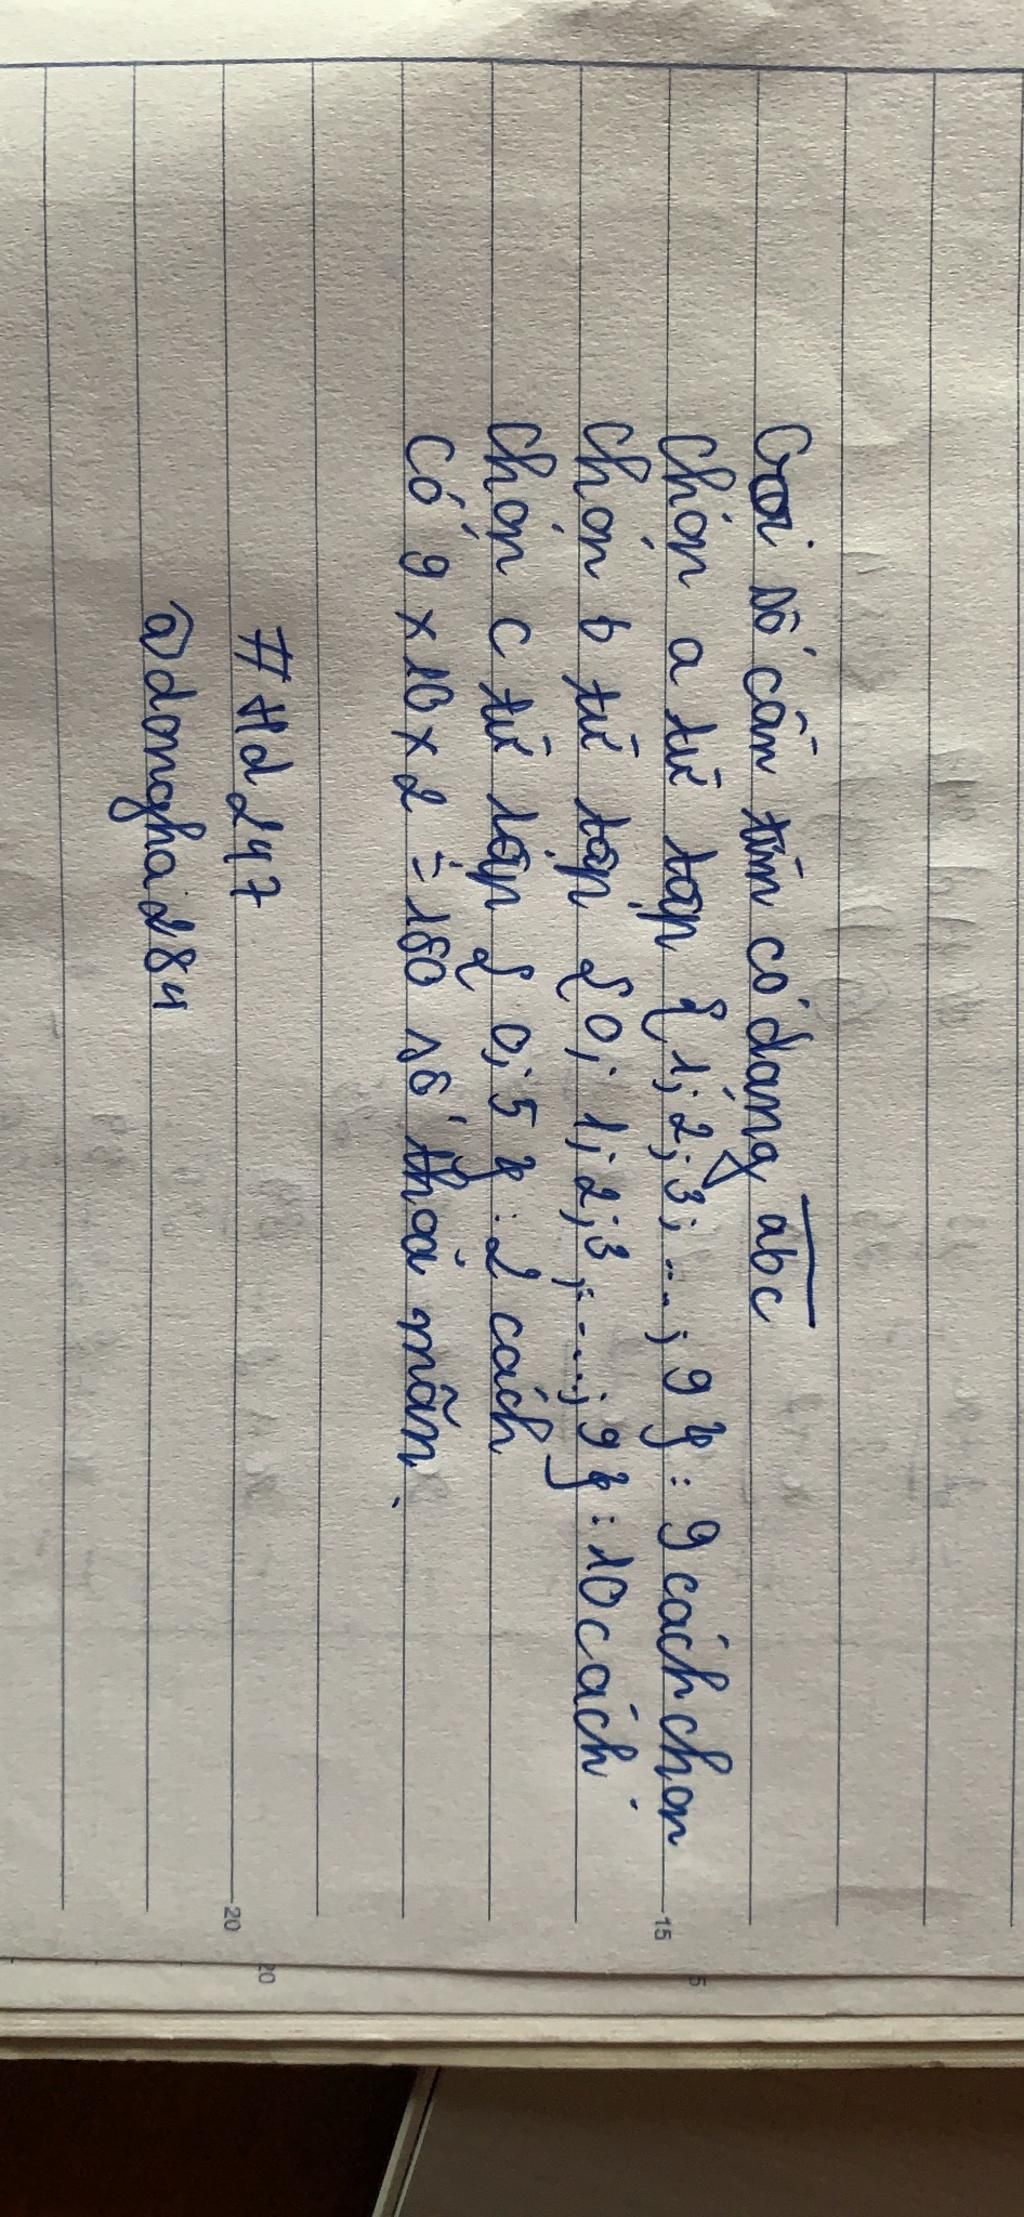 Gọi số cần tìm có dạng abc
Chọn a từ tập {1;2;3;...;9}: 9 cách chọn
Chọn b từ tập {0;1;2;3;....;9}: 10 cách
Chọn c từ tập {0;5}: 2 cách
Có 9 x 10 x 2 = 180 số thỏa mãn.
#Hd247
@dongha284
15
20
5
20